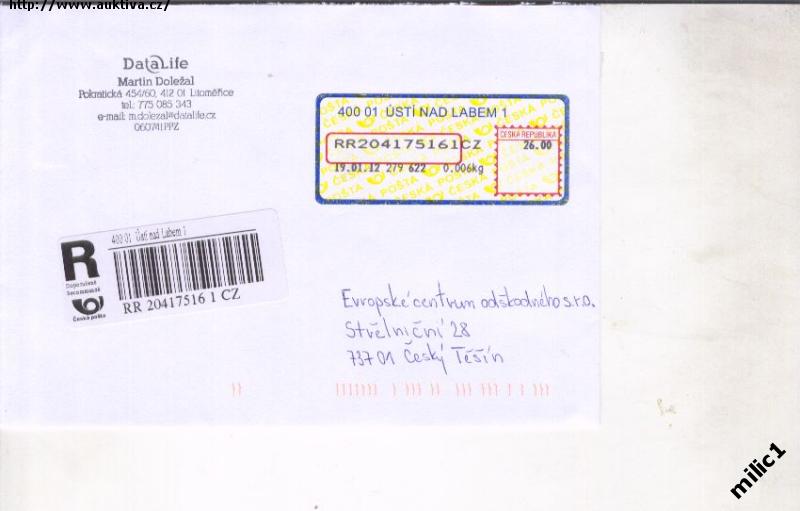 http://www.auktiva.cz/
Dat@Life
Martin Doležal
Pokratická 454/60, 412 01 Litoměřice
tel.: 775 085 343
e-mail: m.dolezal@datalife.cz
060741PPZ
400 01 ÚSTÍ NAD LABEM 1
ČESKÁ REPUBLIKA
RR204175161CZ
26.00
19.01.12 279 622 0.006kg
ČESKÁ POŠTA
400 01 Ústí nad Labem 1
R
Doporučeně
Recommandé
Česká pošta
RR 20417516 1 CZ
Evropské centrum odškodného s.r.o.
Střelniční 28
73701 Český Těšín
milic1